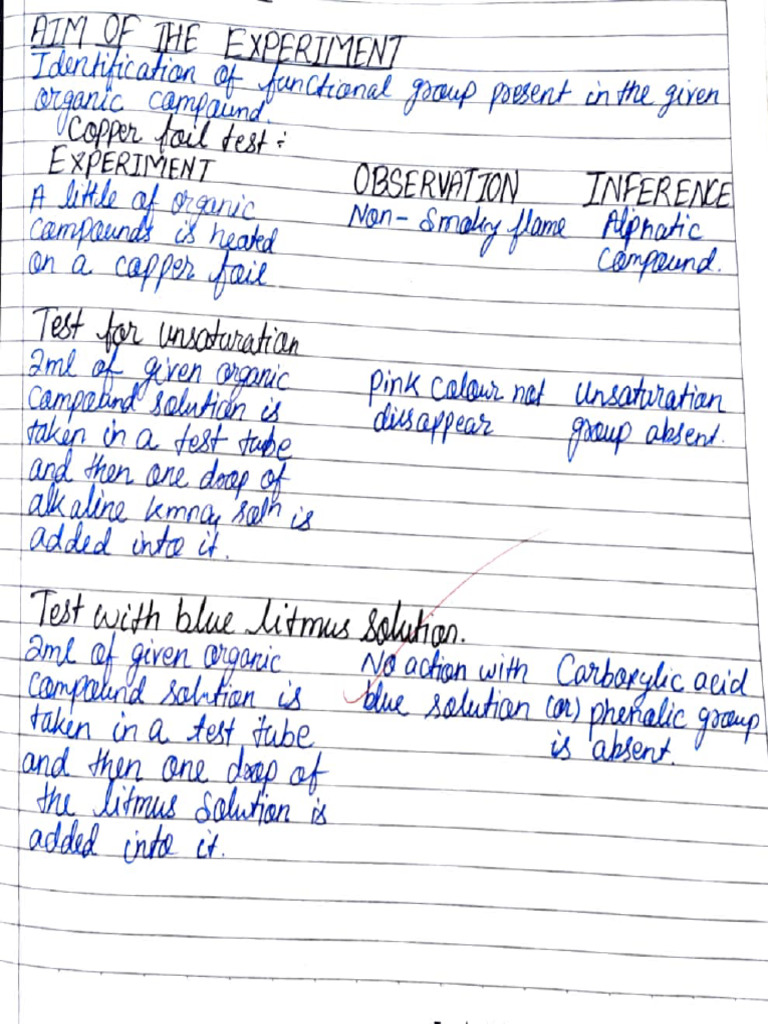 AIM OF THE EXPERIMENT
Identification of functional group present in the given
organic compound.
Copper foil test :
EXPERIMENT OBSERVATION INFERENCE
A little of organic Non-Smoky flame Aliphatic
compounds is heated compound.
on a copper foil
Test for unsaturation
2ml of given organic pink colour not unsaturation
compound solution is disappear group absent.
taken in a test tube
and then one drop of
alkaline kmno4 soln is
added into it.
Test with blue litmus solution.
2ml of given organic No action with Carboxylic acid
compound solution is blue solution (or) phenolic group
taken in a test tube is absent.
and then one drop of
the litmus solution is
added into it.